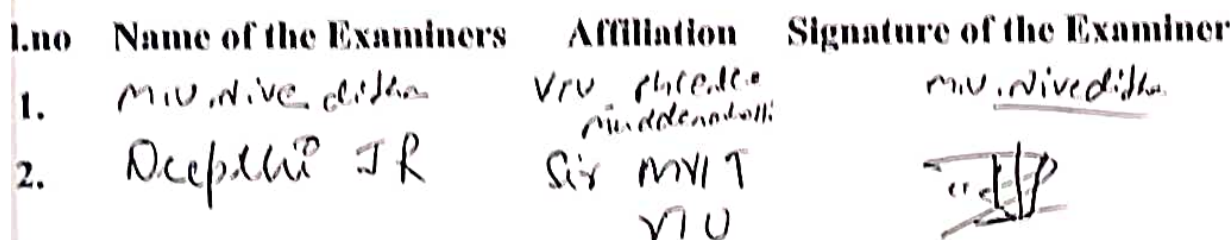 l.no Name of the Examiners Affiliation Signature of the Examiner
1. M.V. Niveditha VTU M.V. Niveditha
2. Deepthi J R Sir MVIT
VTU